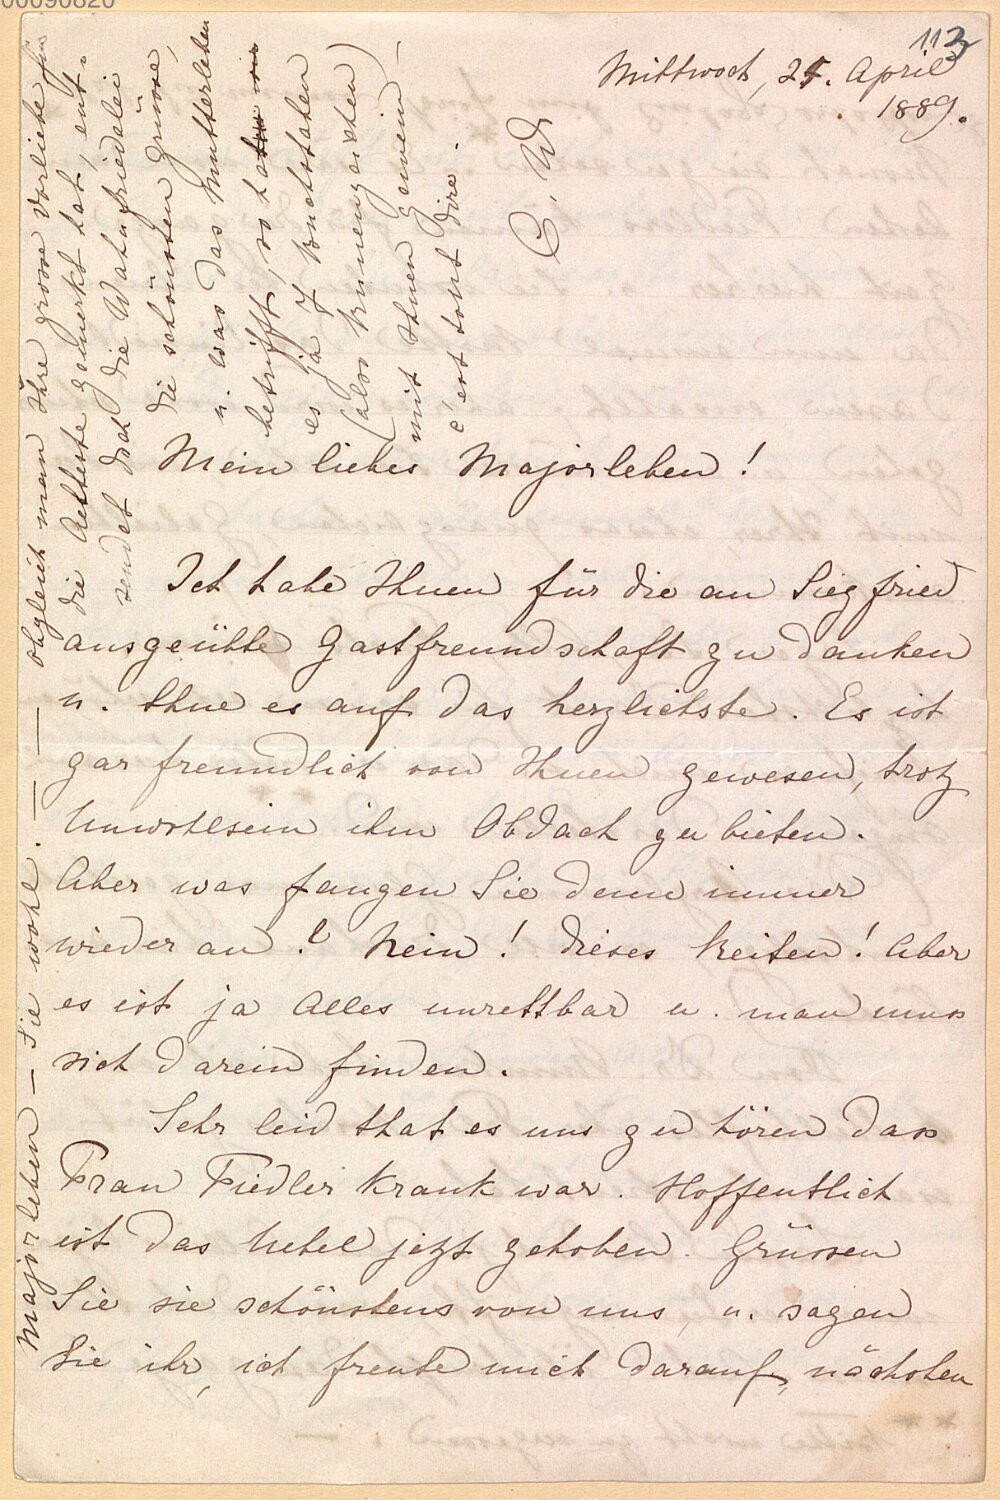 00090820
113
Mittwoch, 25. April
1889.
Mein liebes Majorleben!
Ich habe Ihnen für die an Siegfried
ausgeübte Gastfreundschaft zu danken
u. thue es auf das herzlichste. Es ist
gar freundlich von Ihnen gewesen, trotz
Unwohlsein ihm Obdach zu bieten.
Aber was fangen Sie denn immer
wieder an? Nein! dieses Reiten! Aber
es ist ja Alles unrettbar u. man muss
sich darein finden.
Sehr leid that es uns zu hören dass
Frau Fiedler krank war. Hoffentlich
ist das Uebel jetzt gehoben. Grüssen
Sie sie schönstens von uns, u. sagen
Sie ihr, ich freute mich darauf, nächsten
Majorleben – Sie wohl. — — obgleich man Ihre grosse Vorliebe für
die Aelteste gemerkt hat, ent-
sendet doch die Wahnfriedelei
die schönsten Grüsse,
u. was das Mutterleben
betrifft, so hat
es ja 7 Buchstaben
(also krummgerchen)
mit Ihnen gemein –
c'est tout dire.
C. W.